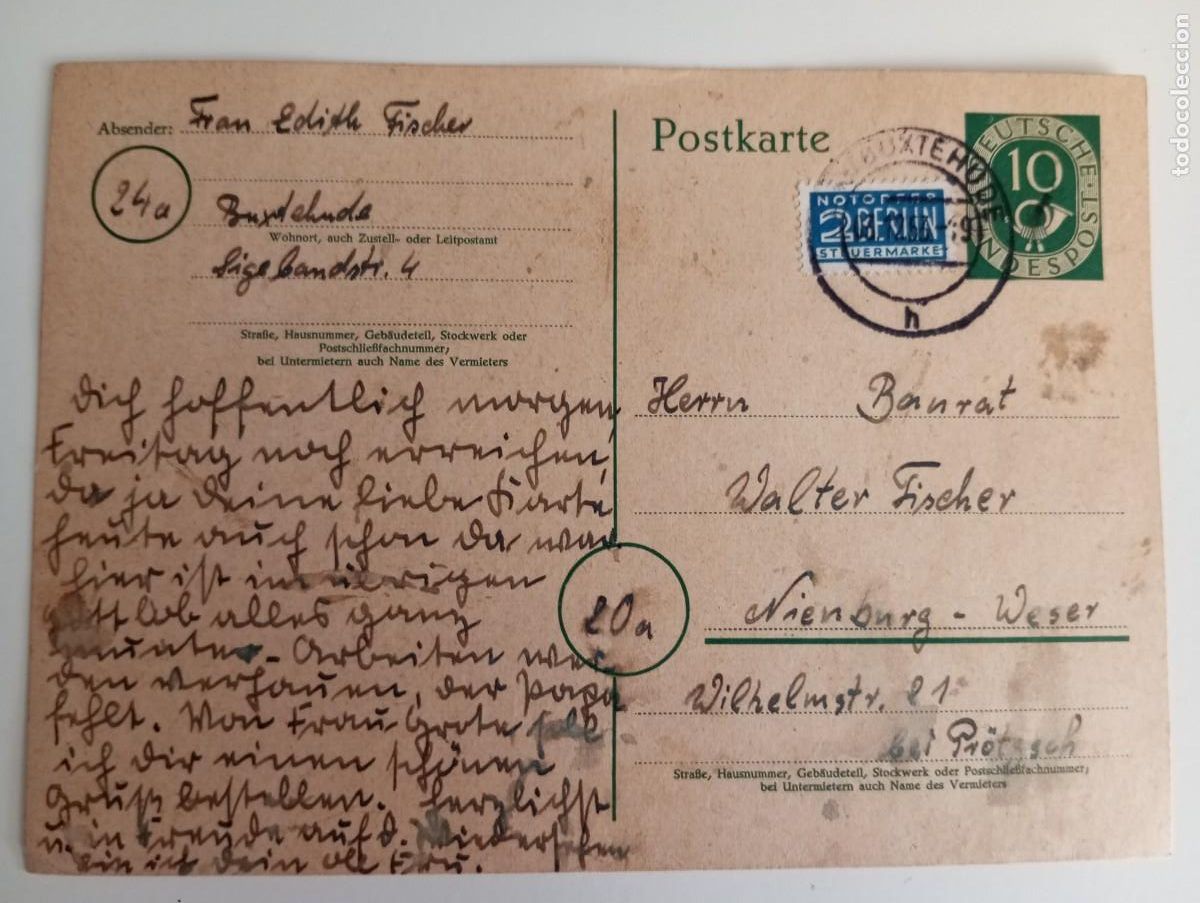 Absender: Frau Edith Fischer
24a
Buxtehude
Wohnort, auch Zustell- oder Leitpostamt
Sigebandstr. 4
Straße, Hausnummer, Gebäudeteil, Stockwerk oder
Postschließfachnummer;
bei Untermietern auch Name des Vermieters
Dich hoffentlich morgen,
Freitag noch erreichen,
da ja deine liebe Karte
heute auch schon da war.
hier ist im übrigen
gottlob alles ganz
munter - Arbeiten wer-
den verhauen, der Papa
fehlt. Von Frau Grote soll
ich dir einen schönen
Gruß bestellen. herzlichst
u. in Freude auf d. Wiedersehen
bin ich dein
Postkarte
BUXTEHUDE
h
NOTOPFER
2 BERLIN
STEUERMARKE
DEUTSCHE BUNDESPOST
10
Herrn Baurat
Walter Fischer
20a
Nienburg - Weser
Wilhelmstr. 21
bei Prötzsch
Straße, Hausnummer, Gebäudeteil, Stockwerk oder Postschließfachnummer;
bei Untermietern auch Name des Vermieters
todocoleccion